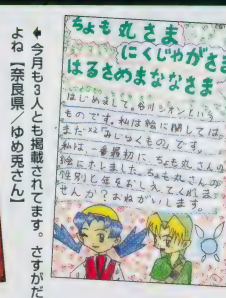 ちょも丸さま
にくじゃがさま
はるさめまななさま
はじめまして。谷川シオンという
ものです。私は絵に関しては、
まだまだみじゅくもの、です。
私は、一番最初に、ちょも丸さんの
絵にホレました。ちょも丸さんの
性別と年をおしえてくれま
せんか?おねがいします。
⬆今月も3人とも掲載されてます。さすがだ
よね【奈良県/ゆめ兎さん】